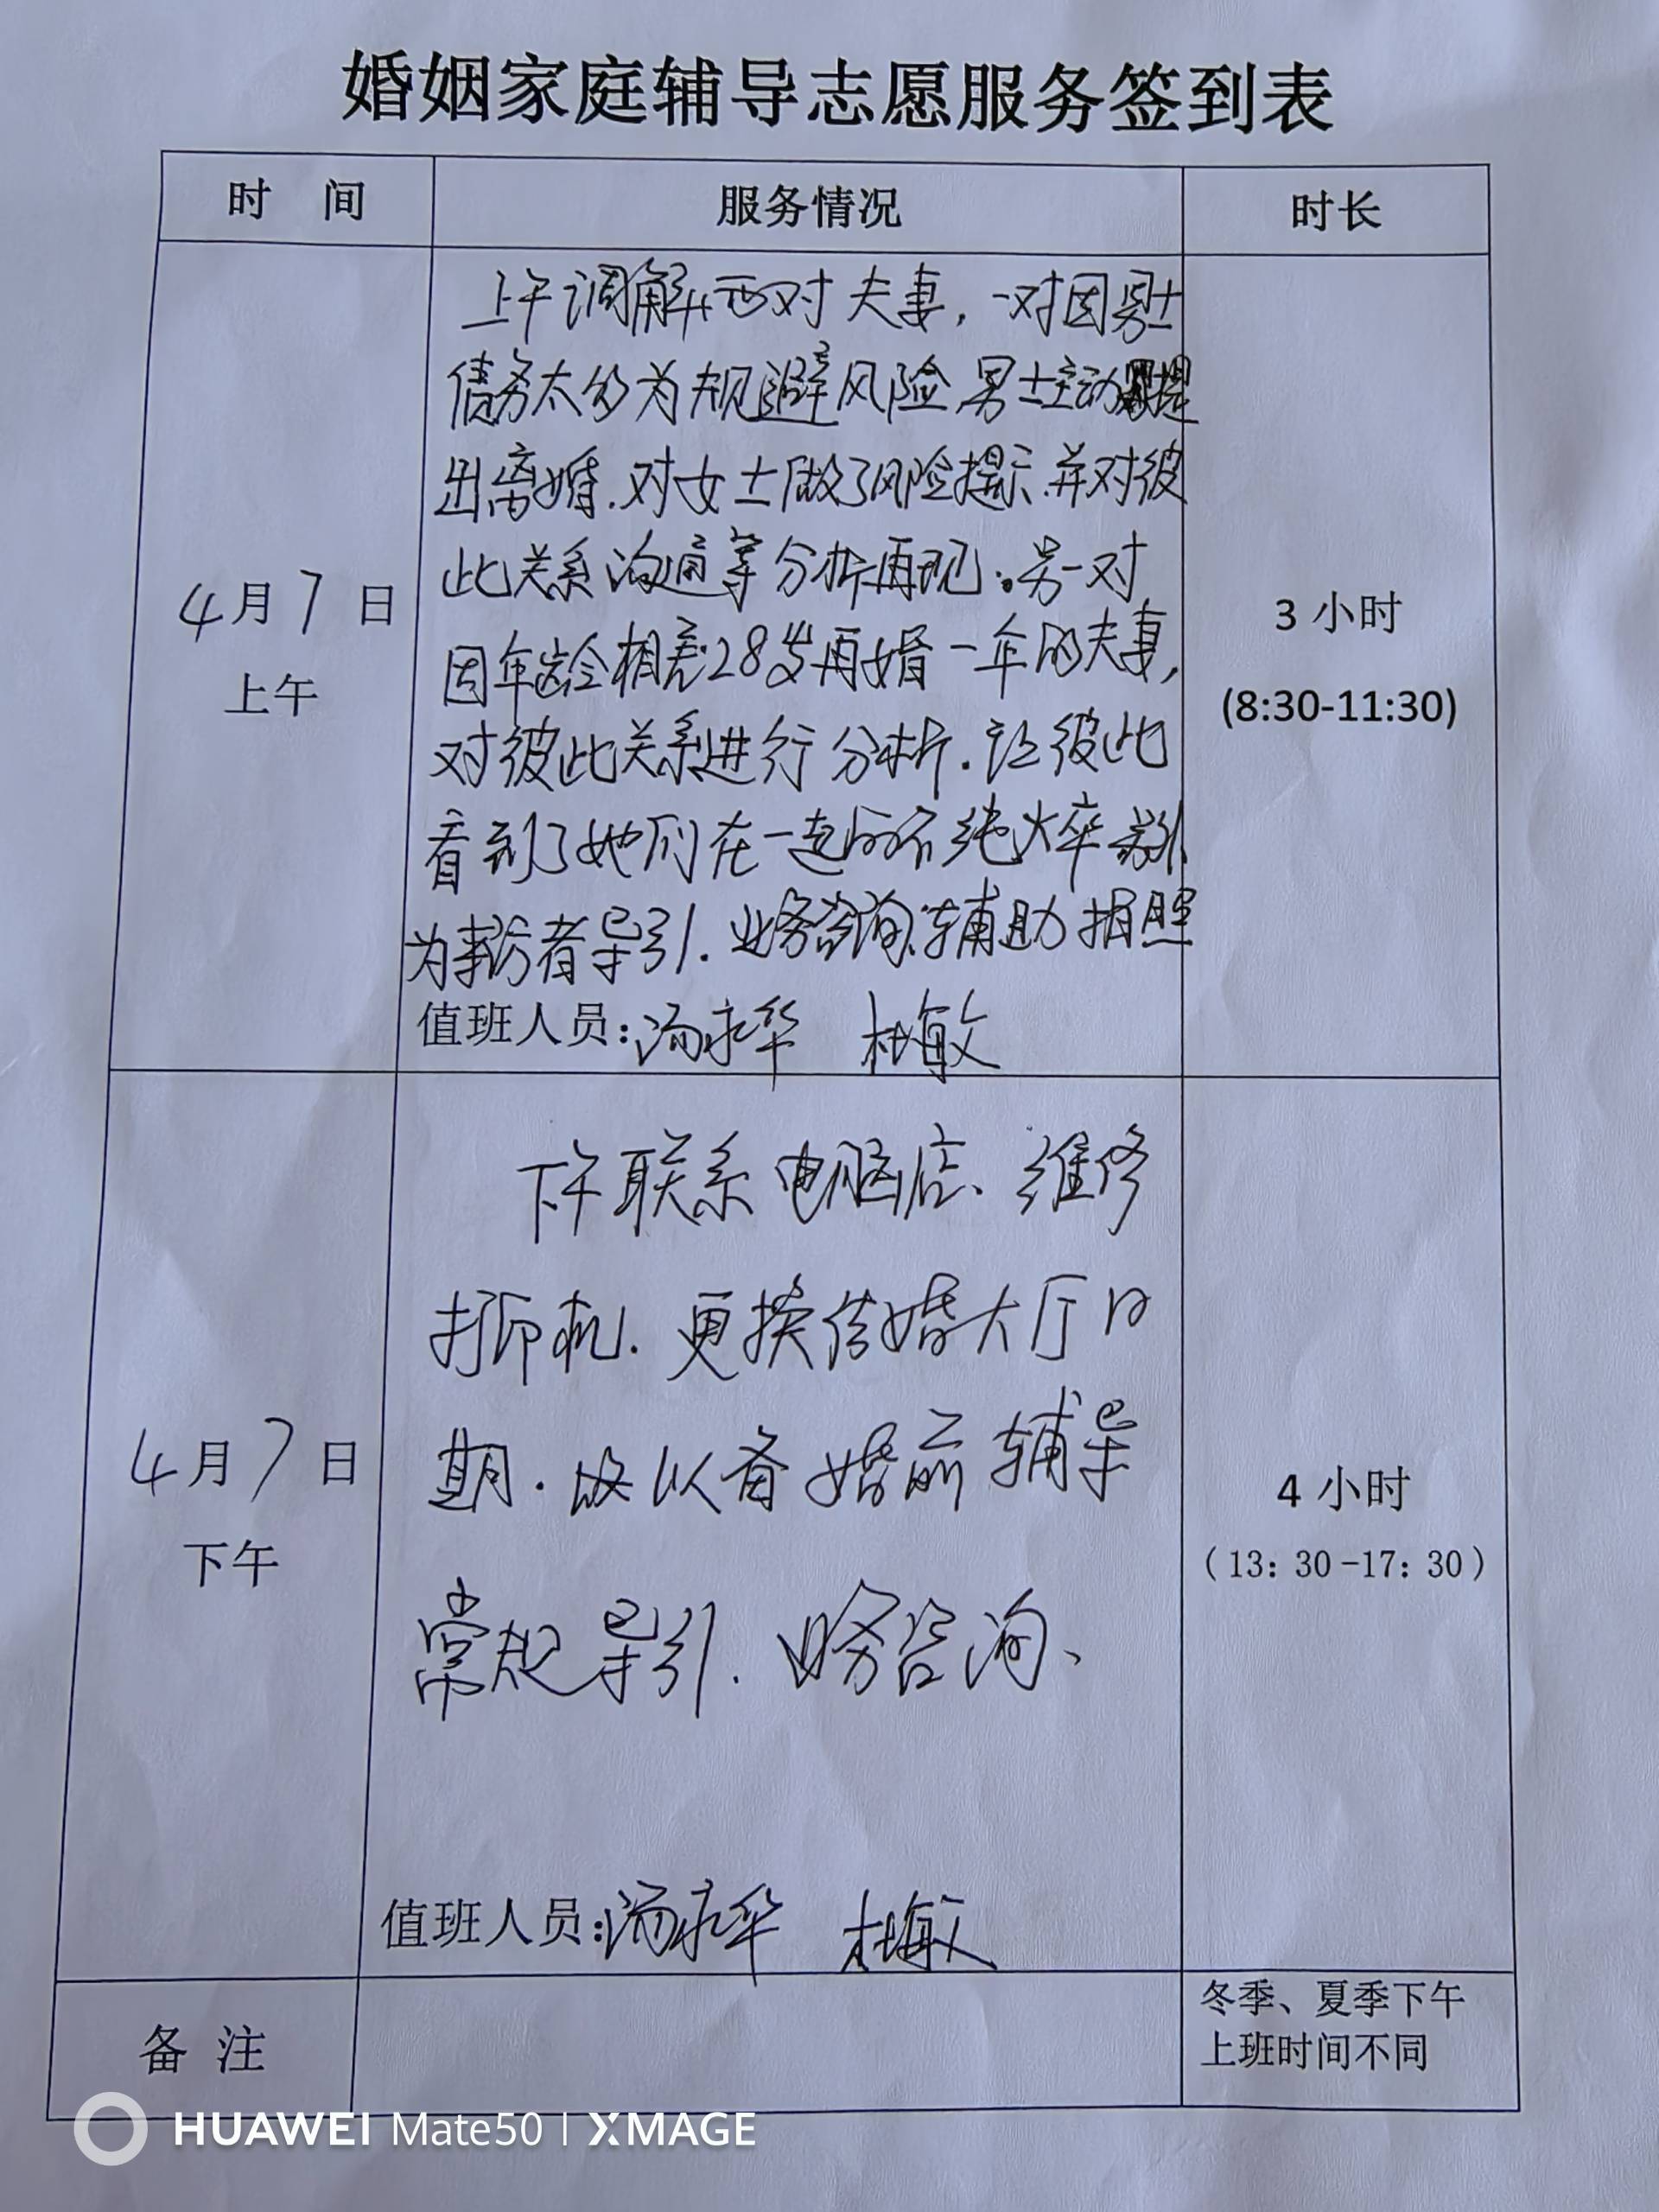 婚姻家庭辅导志愿服务签到表
时 间 服务情况 时长
上午调解两对夫妻，一对因男士
债务太多为规避风险男士主动提
出离婚.对女士做了风险提示.并对彼
此关系沟通等分析再现。另一对
因年龄相差28岁再婚一年的夫妻，
对彼此关系进行分析.让彼此
看到了她们在一起的不纯
为来访者导引.业务咨询.辅助拍照
值班人员：汤永华 杜敏
4月7日
上午
3 小时
(8:30-11:30)
下午联系电脑店、维修
打印机.更换结婚大厅日
期.故以备婚前辅导
常规导引.业务咨询、
值班人员：汤永华 杜敏
4月7日
下午
4 小时
（13：30-17：30）
备 注
冬季、夏季下午
上班时间不同
HUAWEI Mate50 | XMAGE